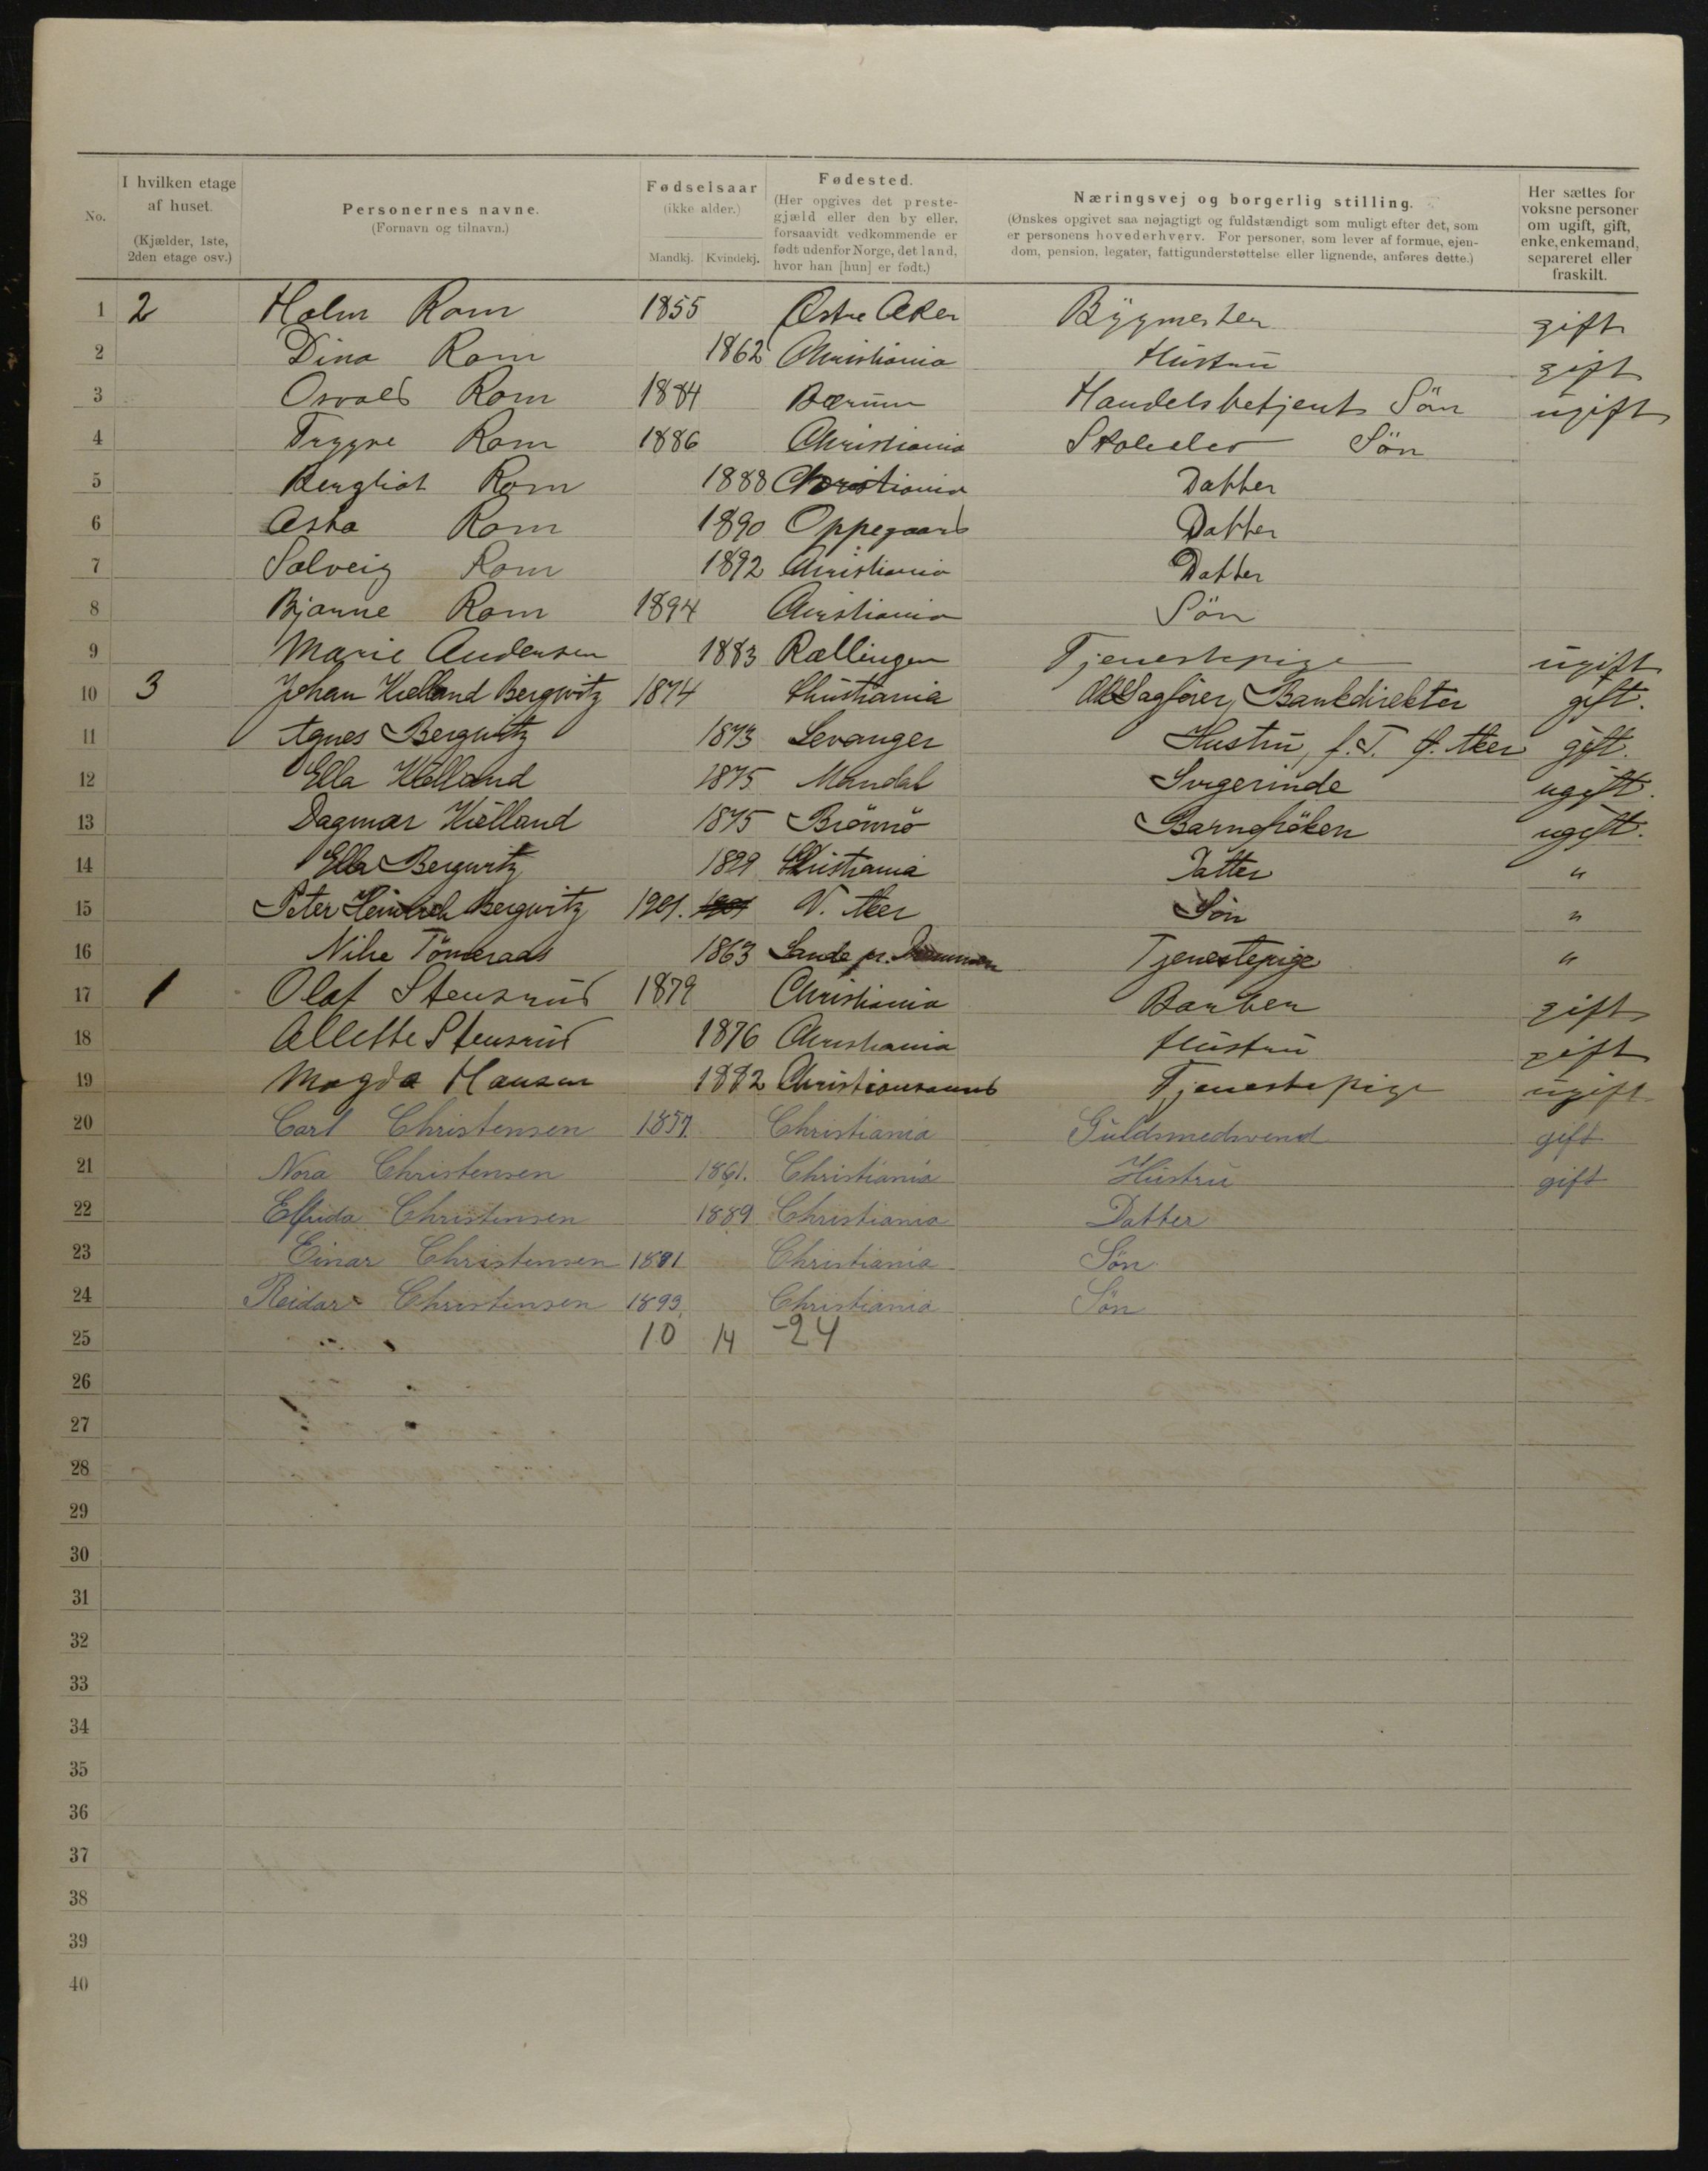 No.
I hvilken etage af huset. (Kjælder, 1ste, 2den etage osv.)
Personernes navne. (Fornavn og tilnavn.)
Fødselsaar (ikke alder.) Mandkj. Kvindekj.
Fødested. (Her opgives det prestegjæld eller den by eller, forsaavidt vedkommende er født udenfor Norge, det land, hvor han [hun] er født.)
Næringsvej og borgerlig stilling. (Ønskes opgivet saa nøjagtigt og fuldstændigt som muligt efter det, som er personens hovederhverv. For personer, som lever af formue, ejendom, pension, legater, fattigunderstøttelse eller lignende, anføres dette.)
Her sættes for voksne personer om ugift, gift, enke, enkemand, separeret eller fraskilt.
1 2 Holm Rom 1855 Østre Aker Bygmester gift
2 Dina Rom 1862 Christiania Hustru gift
3 Osvald Rom 1884 Bærum Handelsbetjent Søn ugift
4 Trygve Rom 1886 Christiania Skoleelev Søn
5 Bergliot Rom 1888 Christiania Datter
6 Asta Rom 1890 Oppegaard Datter
7 Solveig Rom 1892 Christiania Datter
8 Bjarne Rom 1894 Christiania Søn
9 Marie Andersen 1883 Rællingen Tjenestepige ugift
10 3 Johan Kielland Bergwitz 1874 Christiania Sagfører, Bankdirektør gift.
11 Agnes Bergwitz 1873 Levanger Hustru, f. T. Aker gift.
12 Ella Kielland 1875 Mandal Syerinde ugift.
13 Dagmar Kielland 1875 Brönnö Barnefröken ugift.
14 Ella Bergwitz 1899 Christiania Datter "
15 Peter Heinrich Bergwitz 1901. V. Aker Søn "
16 1863 Sande pr. Drammen Tjenestepige "
17 1 Olaf Stensrud 1879 Christiania Barber gift
18 Allette Stensrud 1876 Christiania Hustru gift
19 Magda Hansen 1882 Christianssand Tjenestepige ugift
20 Carl Christensen 1857 Christiania Guldsmedsvend gift
21 Nora Christensen 1861. Christiania Hustru gift
22 Elfrida Christensen 1889 Christiania Datter
23 Einar Christensen 1891 Christiania Søn
24 Reidar Christensen 1893. Christiania Søn
25 10 14 -24
26
27
28
29
30
31
32
33
34
35
36
37
38
39
40